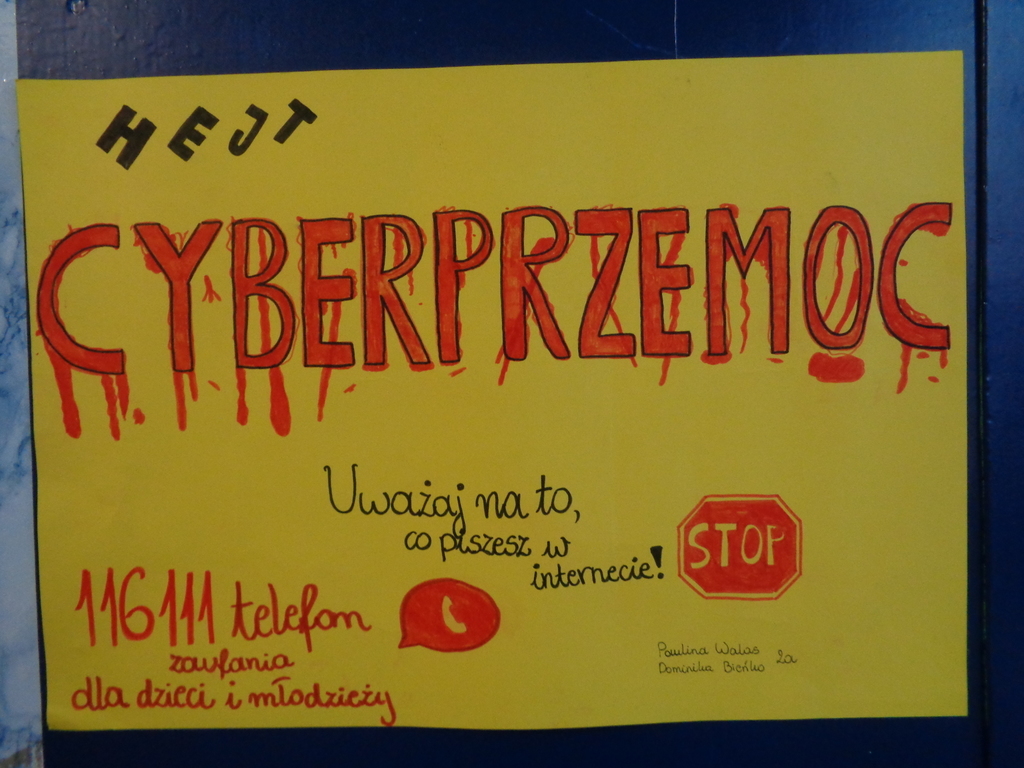 HEJT
CYBERPRZEMOC
Uważaj na to,
co piszesz w
internecie!
STOP
116 111 telefon
zaufania
dla dzieci i młodzieży
Paulina Walas
Dominika Bieńko 2a